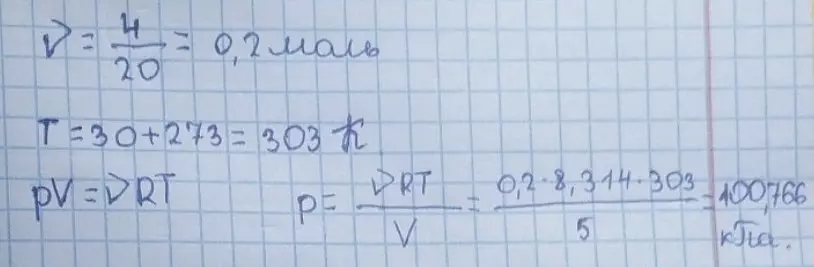 ν = 4/20 = 0,2 моль
T = 30 + 273 = 303 К
pV = νRT p = νRT/V = 0,2·8,314·303/5 = 100,766 кПа.